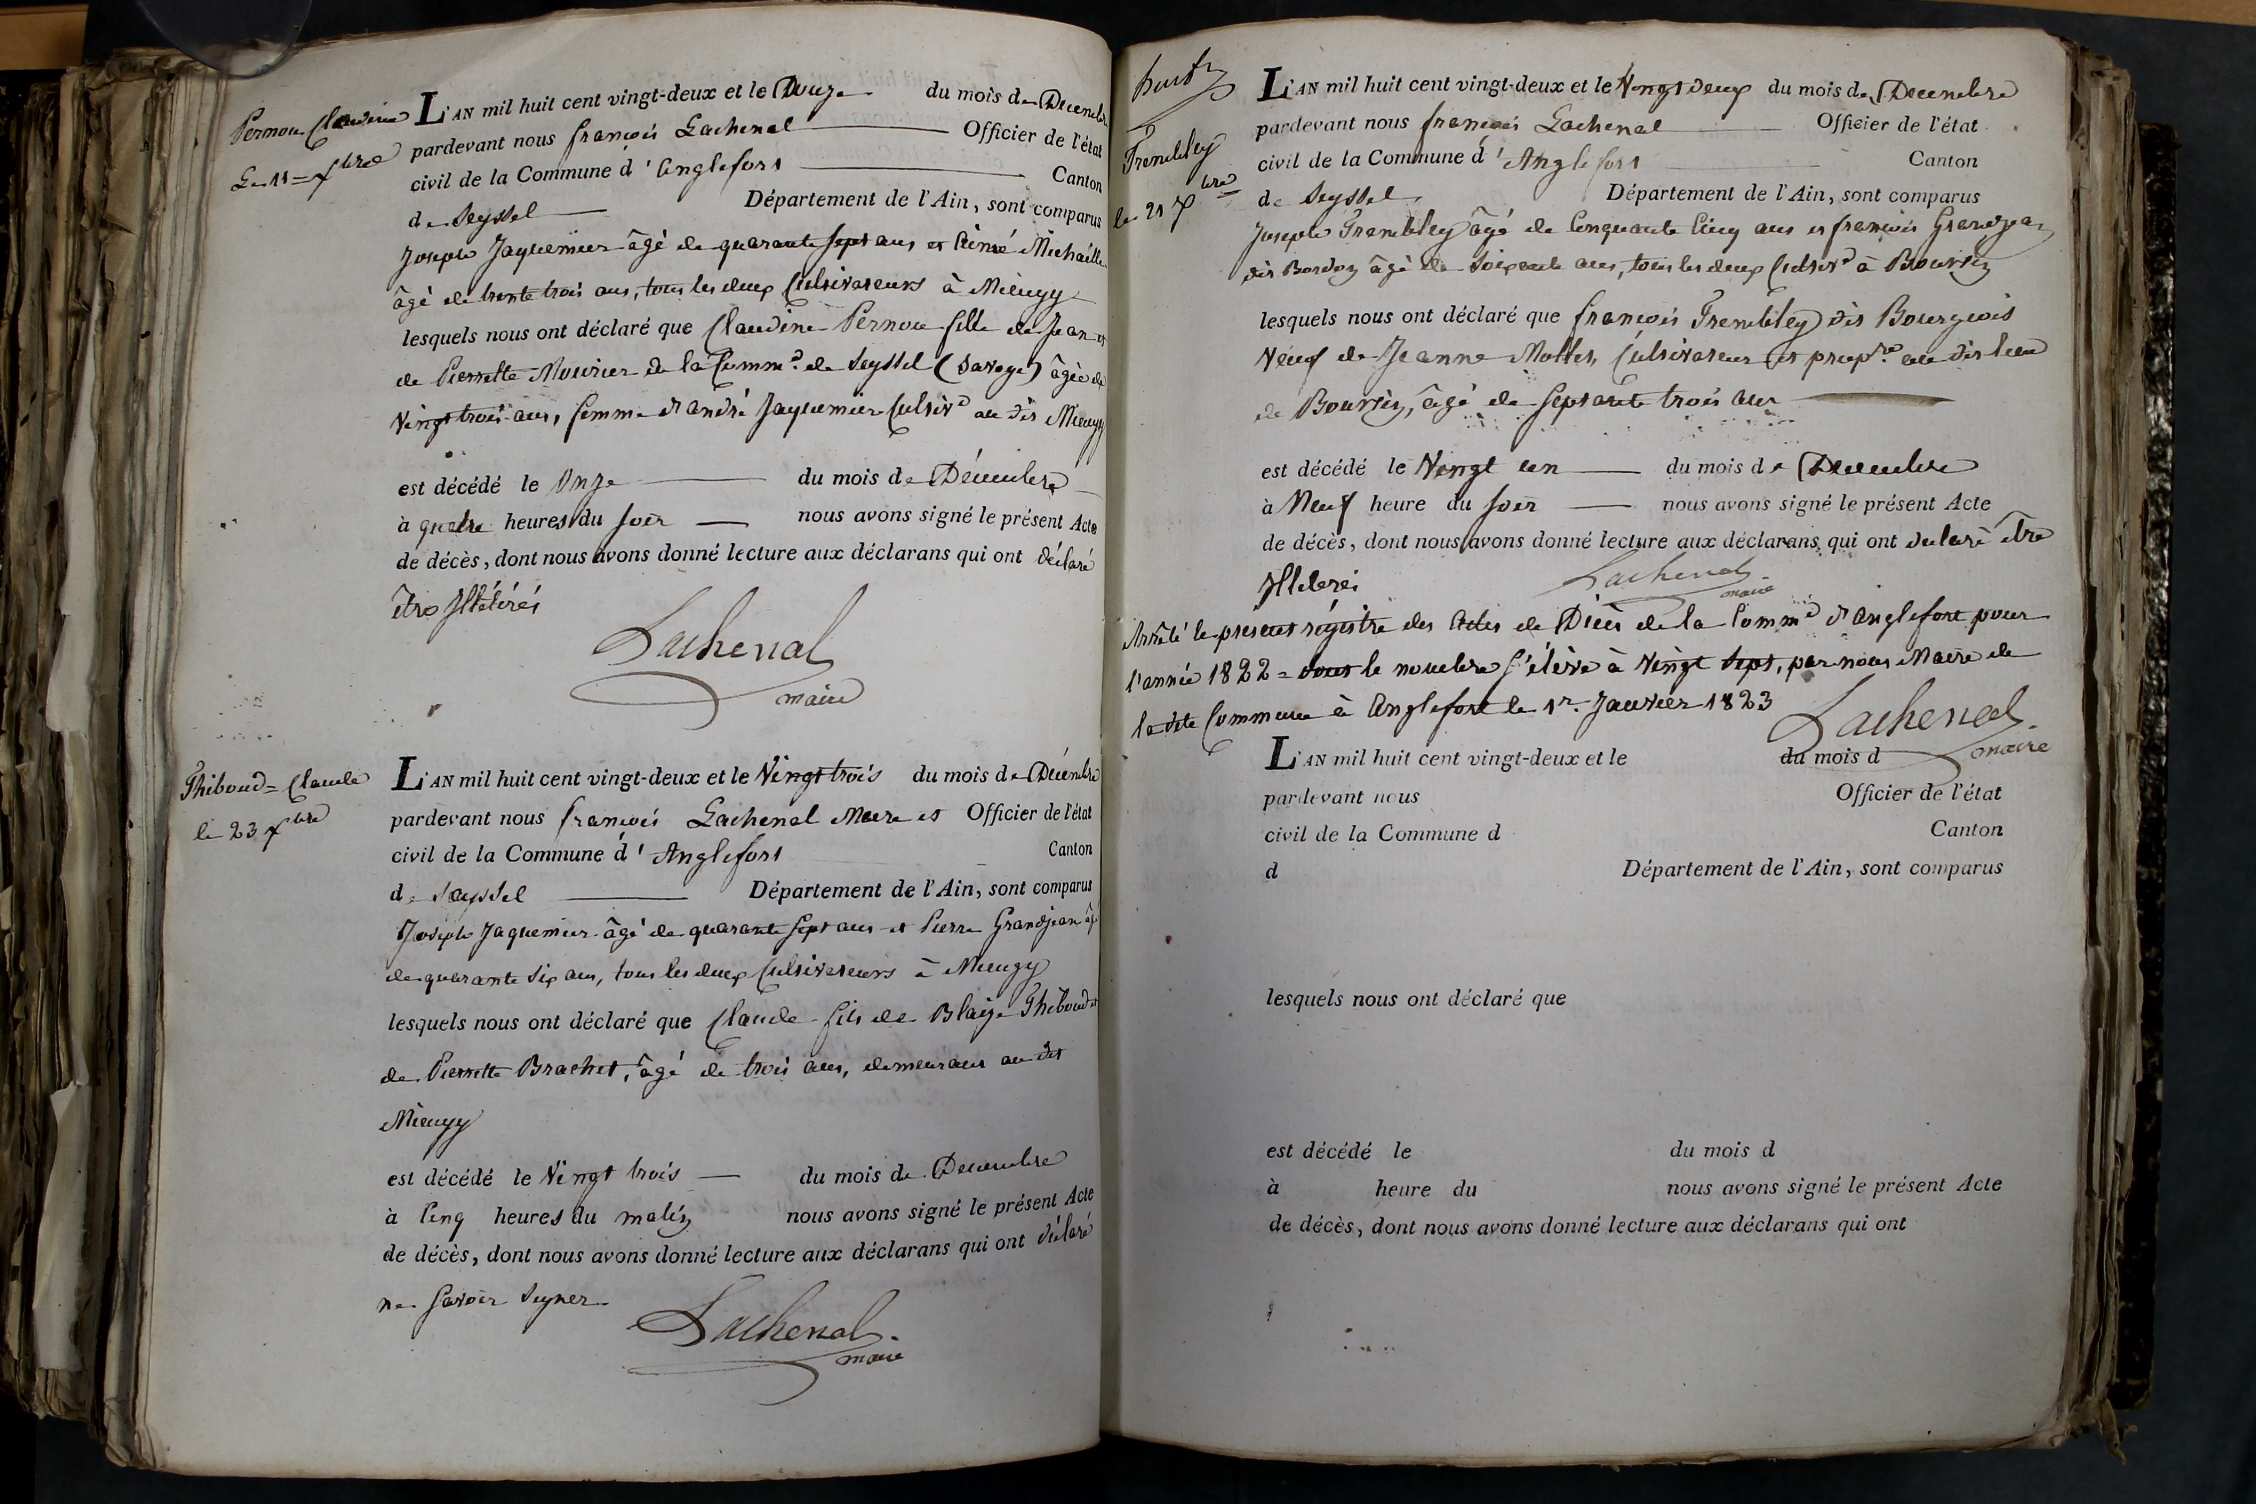 Pernou Claudine
Le 11 = Xbre
L'AN mil huit cent vingt-deux et le Douze du mois de Decembre
pardevant nous françois Lachenal Officier de l'état
civil de la Commune d'Anglefort Canton
de Seyssel Département de l'Ain, sont comparus
Joseph Jaquemier âgé de quarante sept ans et Aimé Michaille
âgé de trente trois ans, tous les deux Cultivateurs à Mieugy
lesquels nous ont déclaré que Claudine Pernou fille de Jean et
de Pierrette Mourier de la Comm.e de Seyssel (Savoye) âgée de
vingt trois ans, femme d'andré Jaquemier Cultivr au dit Mieugy
est décédé le Onze du mois de Décembre
à quatre heures du soir nous avons signé le présent Acte
de décès, dont nous avons donné lecture aux déclarans qui ont déclaré
être Illétérés
Lachenal
maire
Thiboud = Claude
le 23 Xbre
L'AN mil huit cent vingt-deux et le vingt trois du mois de Décembre
pardevant nous françois Lachenal Maire et Officier de l'état
civil de la Commune d'Anglefort Canton
de Seyssel Département de l'Ain, sont comparus
Joseph Jaquemier âgé de quarante sept ans et Pierre Grandjean âgé
de quarante six ans, tous les deux Cultivateurs à Mieugy
lesquels nous ont déclaré que Claude fils de Blaize Thiboud et
de Pierrette Brachet, âgé de trois ans, demeurant au dit
Mieugy
est décédé le vingt trois du mois de Decembre
à Cinq heures du matin nous avons signé le présent Acte
de décès, dont nous avons donné lecture aux déclarans qui ont déclaré
ne savoir signer
Lachenal
maire
Trembley
le 21 Xbre
L'AN mil huit cent vingt-deux et le vingt deux du mois de Decembre
pardevant nous françois Lachenal Officier de l'état
civil de la Commune d'Anglefort Canton
de Seyssel Département de l'Ain, sont comparus
Joseph Trembley âgé de Cinquante Cinq ans et françois Grandjean
dit Bordon âgé de soixante ans, tous les deux Cultivr à Boursin
lesquels nous ont déclaré que françois Trembley dit Bourgeois
Veuf de Jeanne Mollet, Cultivateur et propre au dit lieu
de Boursin, âgé de septante trois ans
est décédé le Vingt un du mois de Decembre
à Neuf heure du soir nous avons signé le présent Acte
de décès, dont nous avons donné lecture aux déclarans qui ont declaré être
Illeterés
Lachenal
maire
Arrêté le présent régistre des Actes de Décès de la Comme d'anglefort pour
l'année 1822 = dont le nombre s'élève à vingt sept, par nous Maire de
la dite Commune à Anglefort le 1r. Janvier 1823
Lachenal
maire
L'AN mil huit cent vingt-deux et le du mois d
pardevant nous Officier de l'état
civil de la Commune d Canton
d Département de l'Ain, sont comparus
lesquels nous ont déclaré que
est décédé le du mois d
à heure du nous avons signé le présent Acte
de décès, dont nous avons donné lecture aux déclarans qui ont